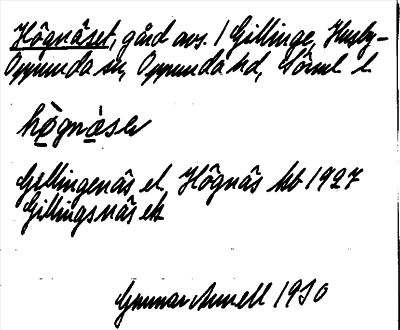 Högnäset, gård avs. / Gillinge, Husby-
Oppunda sn, Oppunda hd, Söml l
högnäsev
Gillingenäs el. Högnäs kb 1927
Gillingsnäs ek
Gunnar Amell 1930